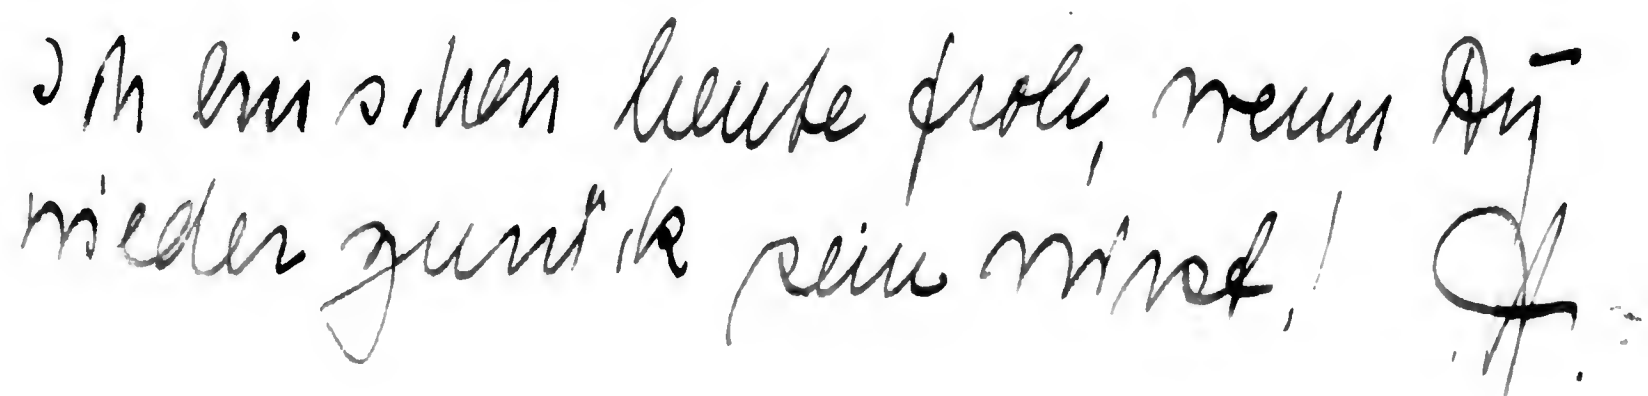 Ich bin schon heute froh, wenn Du
wieder zurück sein wirst!